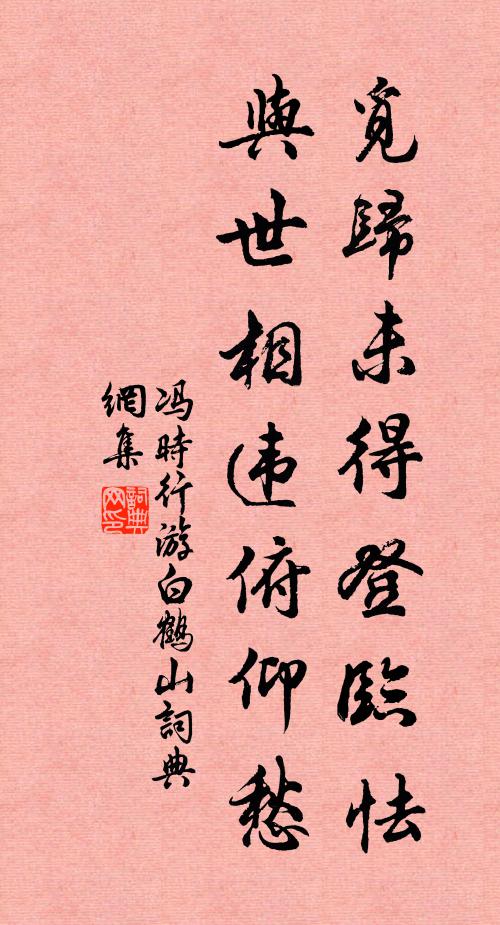 覓歸未得登臨怯
與世相违俯仰愁
冯時行游白鶴山詞典
網集
詞典
网印